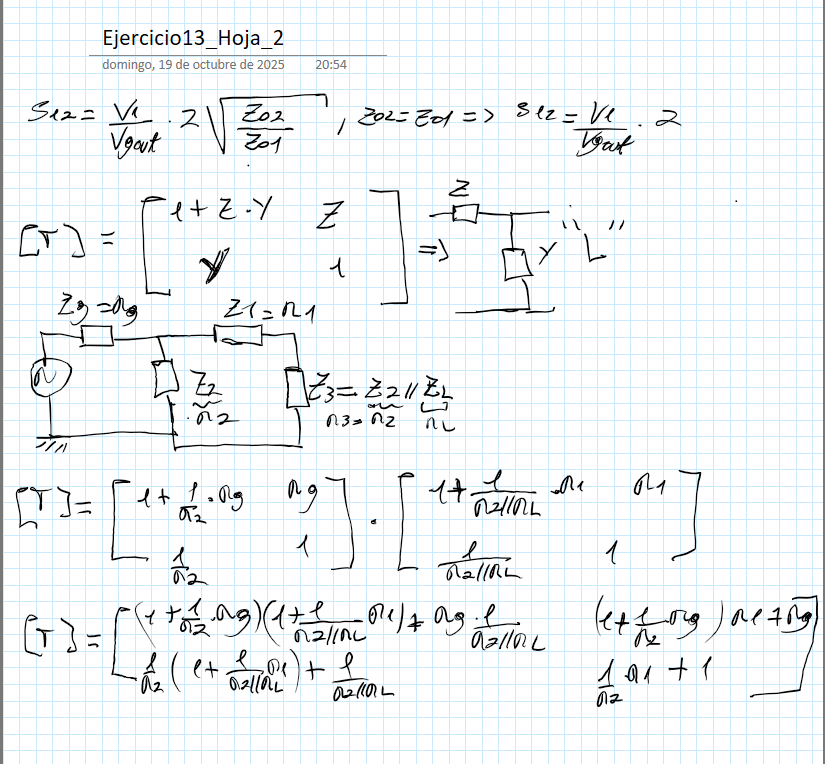 Ejercicio13_Hoja_2
domingo, 19 de octubre de 2025 20:54
S12 = V1/Vgout · 2 √(Z02/Z01) , Z02 = Z01 => S12 = V1/Vgout · 2
Z
[T] = [ 1 + Z·Y Z ; Y 1 ] => Y "L"
Zg = Rg Z1 = R1
Z2 Z3 = Z2 // ZL
R2 R3 = R2 RL
[T] = [ 1 + 1/R2 · Rg Rg ; 1/R2 1 ] · [ 1 + 1/R2//RL · R1 R1 ; 1/R2//RL 1 ]
[T] = [ (1 + 1/R2 · Rg)(1 + 1/R2//RL R1) + Rg · 1/R2//RL (1 + 1/R2 Rg) R1 + Rg ;
1/R2 (1 + 1/R2//RL R1) + 1/R2//RL 1/R2 R1 + 1 ]